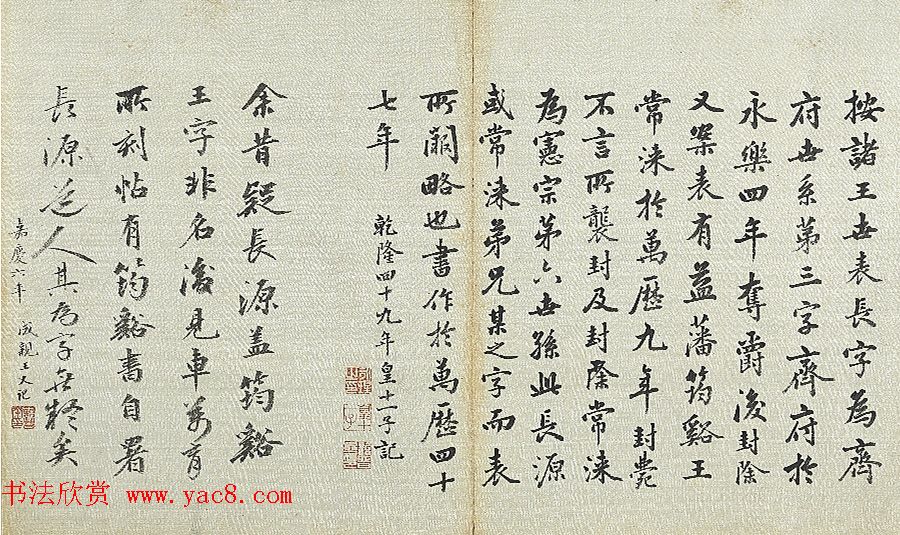 按諸王世表長字為齊
府世系第三字齊府於
永樂四年奪爵後封除
又案表有益藩筠谿王
常涞於萬歷九年封薨
不言所襲封及封除常涞
為憲宗第六世孫此長源
或常涞弟兄某之字而表
所闕略也書作於萬歷四十
七年
乾隆四十九年皇十一子記
余昔疑長源蓋筠谿
王字非名後見車萬育
所刻帖有筠谿書自署
長源道人其為字無疑矣
嘉慶六年 成親王又記
书法欣赏 www.yac8.com